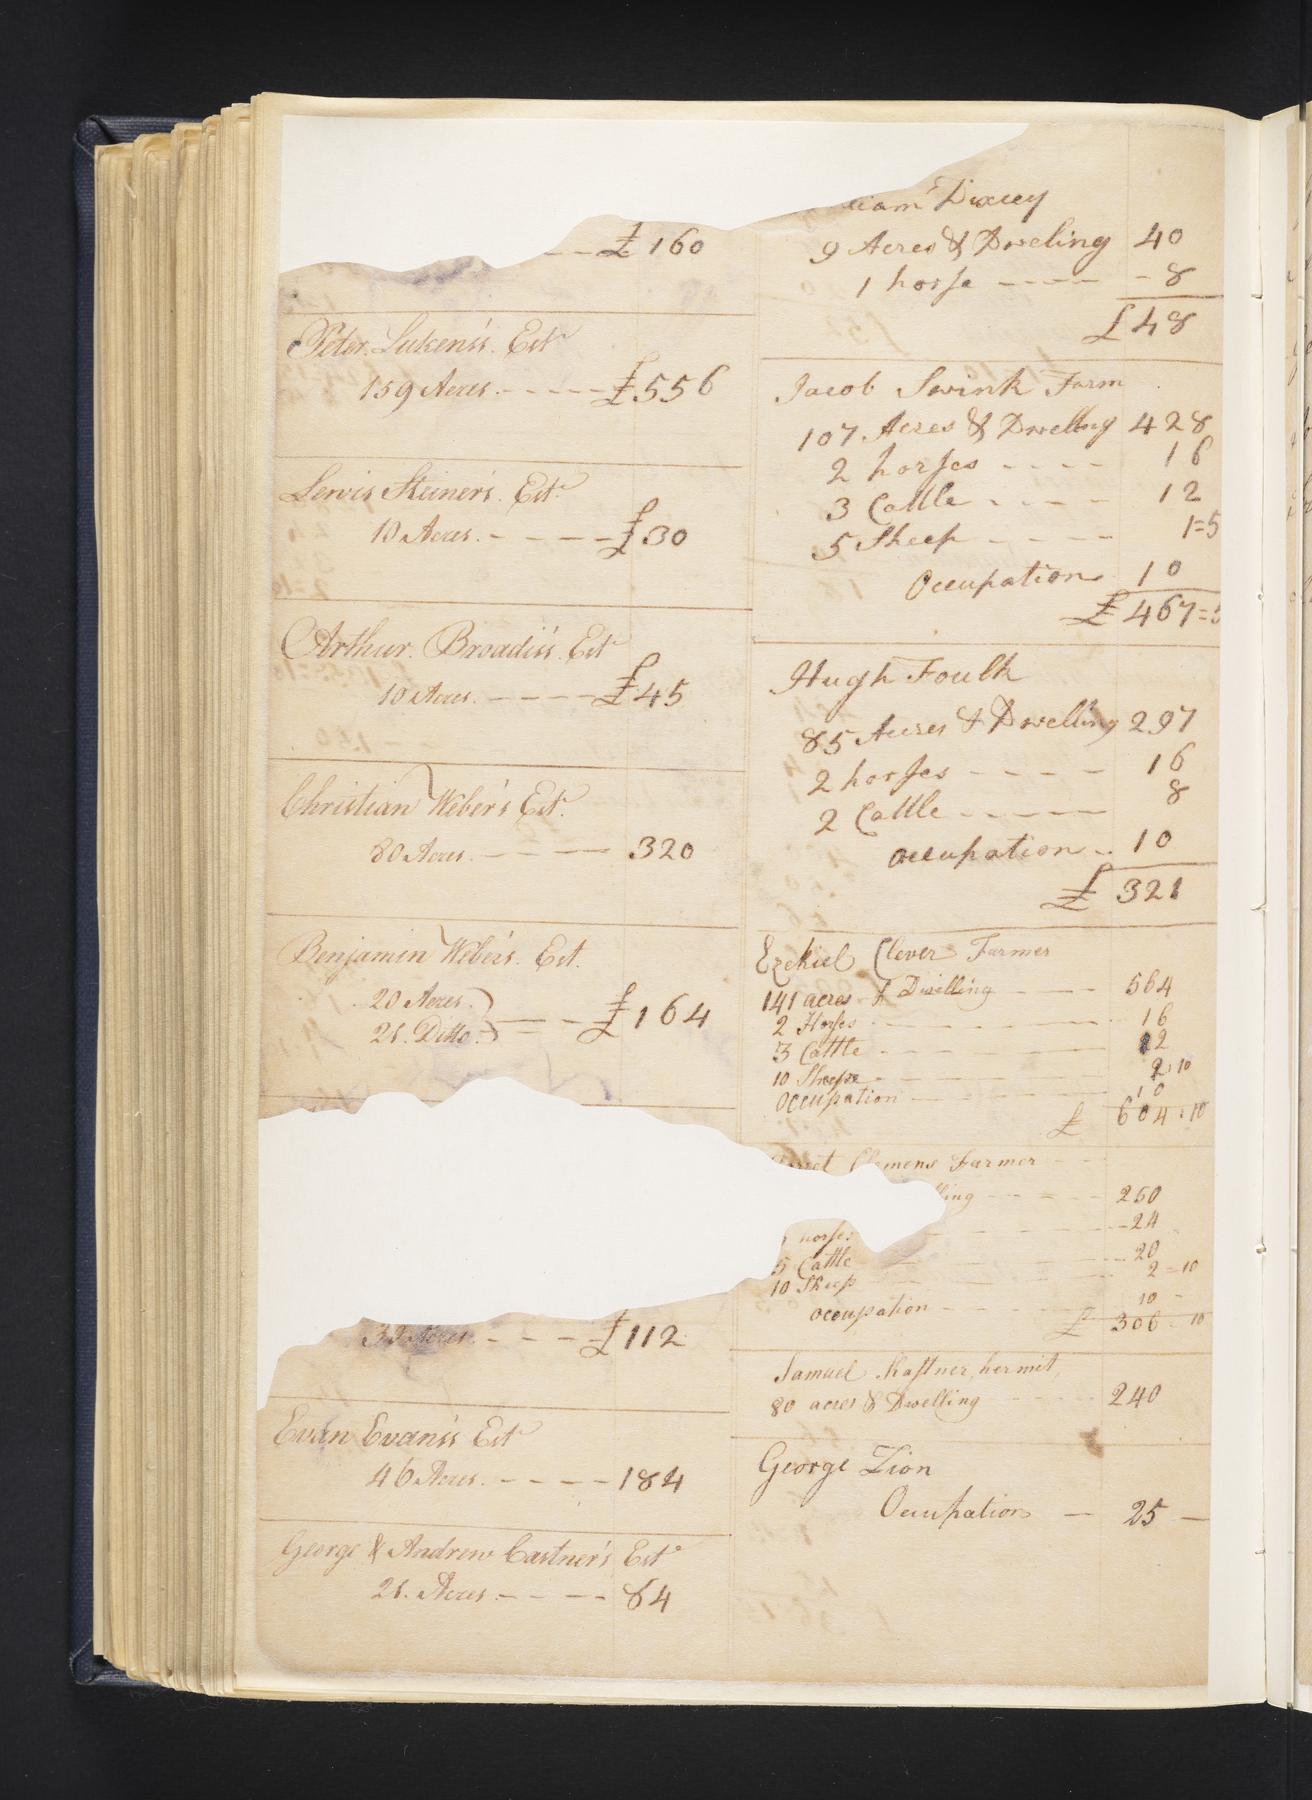 £ 160
Peter Lukens's Estr
159 Acres £556
Lewis Steiner's Estr
10 Acres £30
Arthur Broadis's Estr
10 Acres £45
Christian Weber's Estr
80 Acres 320
Benjamin Weber's Est.
20 Acres
21 Ditto £164
Acres £112
Evan Evans's Estr
46 Acres 184
George & Andrew Castner's Estr
21 Acres 84
iam Dixcey
9 Acres & Dweling 40
1 horse 8
£48
Jacob Swink Farm
107 Acres & Dwelling 428
2 horses 16
3 Cattle 12
5 Sheep 1=5
Occupation 10
£ 467=5
Hugh Foulk
85 Acres & Dwelling 297
2 horses 16
2 Cattle 8
occupation 10
£ 321
Ezekiel Clever Farmer
141 acres & Dwelling 564
2 Horses 16
3 Cattle 12
10 Sheepe 2:10
Occupation 10
£ 604:10
Clemens Farmer
lling 250
horses 24
5 Cattle 20
10 Sheep 2=10
occupation 10
£ 306=10
Samuel Kastner, hermit,
80 acres & Dwelling 240
George Zion
Occupation 25